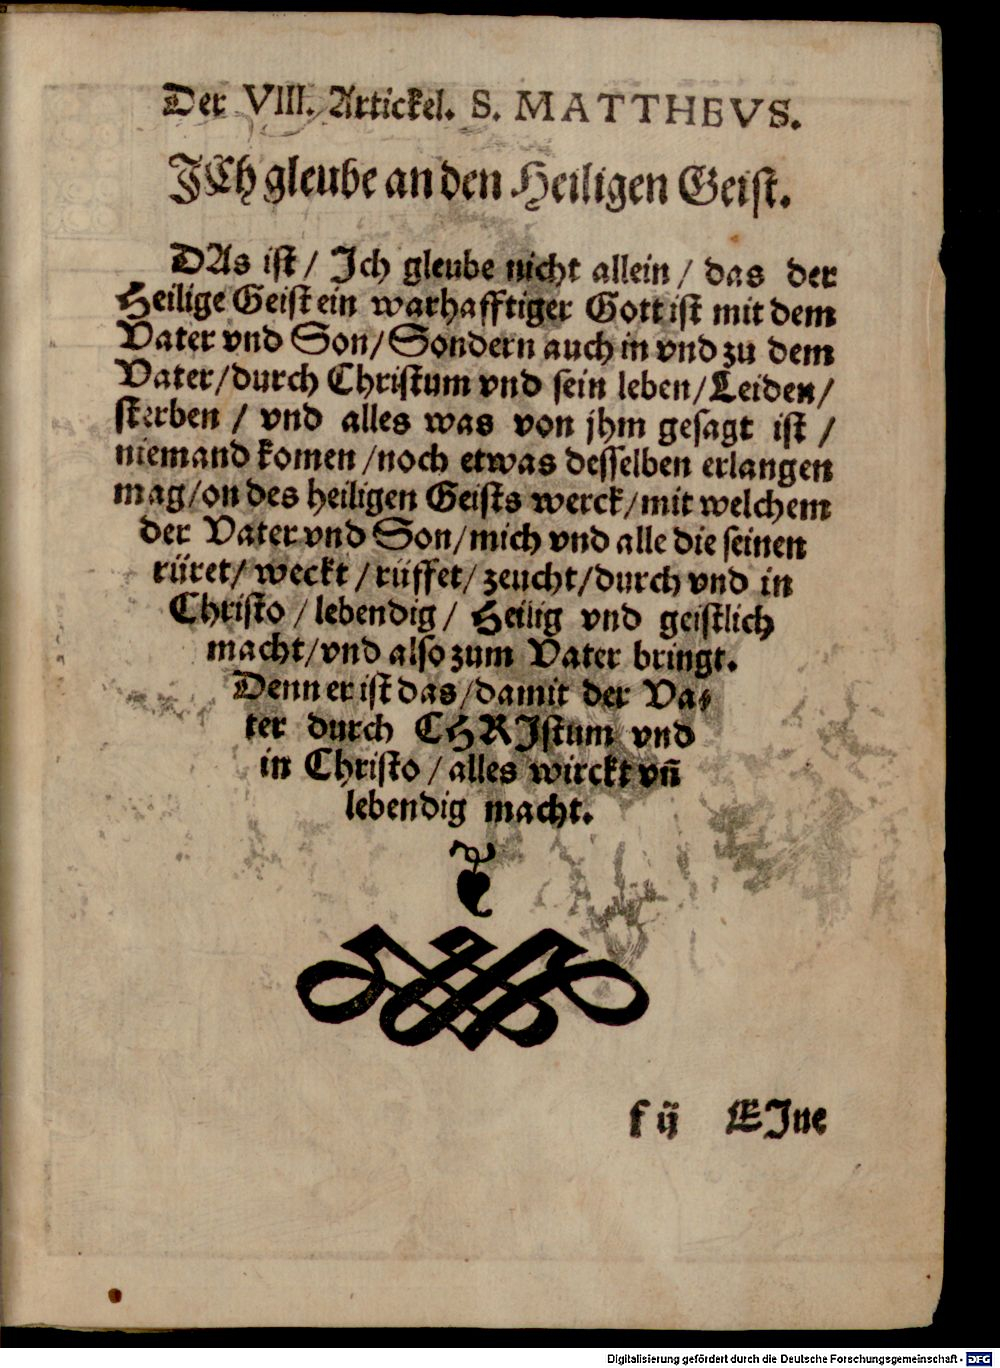 Der VIII. Artickel. S. MATTHEVS.
JCh gleube an den Heiligen Geist.
DAs ist / Jch gleube nicht allein / das der
Heilige Geist ein warhafftiger Gott ist mit dem
Vater vnd Son / Sondern auch in vnd zu dem
Vater / durch Christum vnd sein leben / Leiden /
sterben / vnd alles was von jhm gesagt ist /
niemand komen / noch etwas desselben erlangen
mag / on des heiligen Geists werck / mit welchem
der Vater vnd Son / mich vnd alle die seinen
rüret / weckt / rüffet / zeucht / durch vnd in
Christo / lebendig / Heilig vnd geistlich
macht / vnd also zum Vater bringt.
Denn er ist das / damit der Va-
ter durch CHRJstum vnd
in Christo / alles wirckt vñ
lebendig macht.
f ij EJne
Digitalisierung gefördert durch die Deutsche Forschungsgemeinschaft - DFG